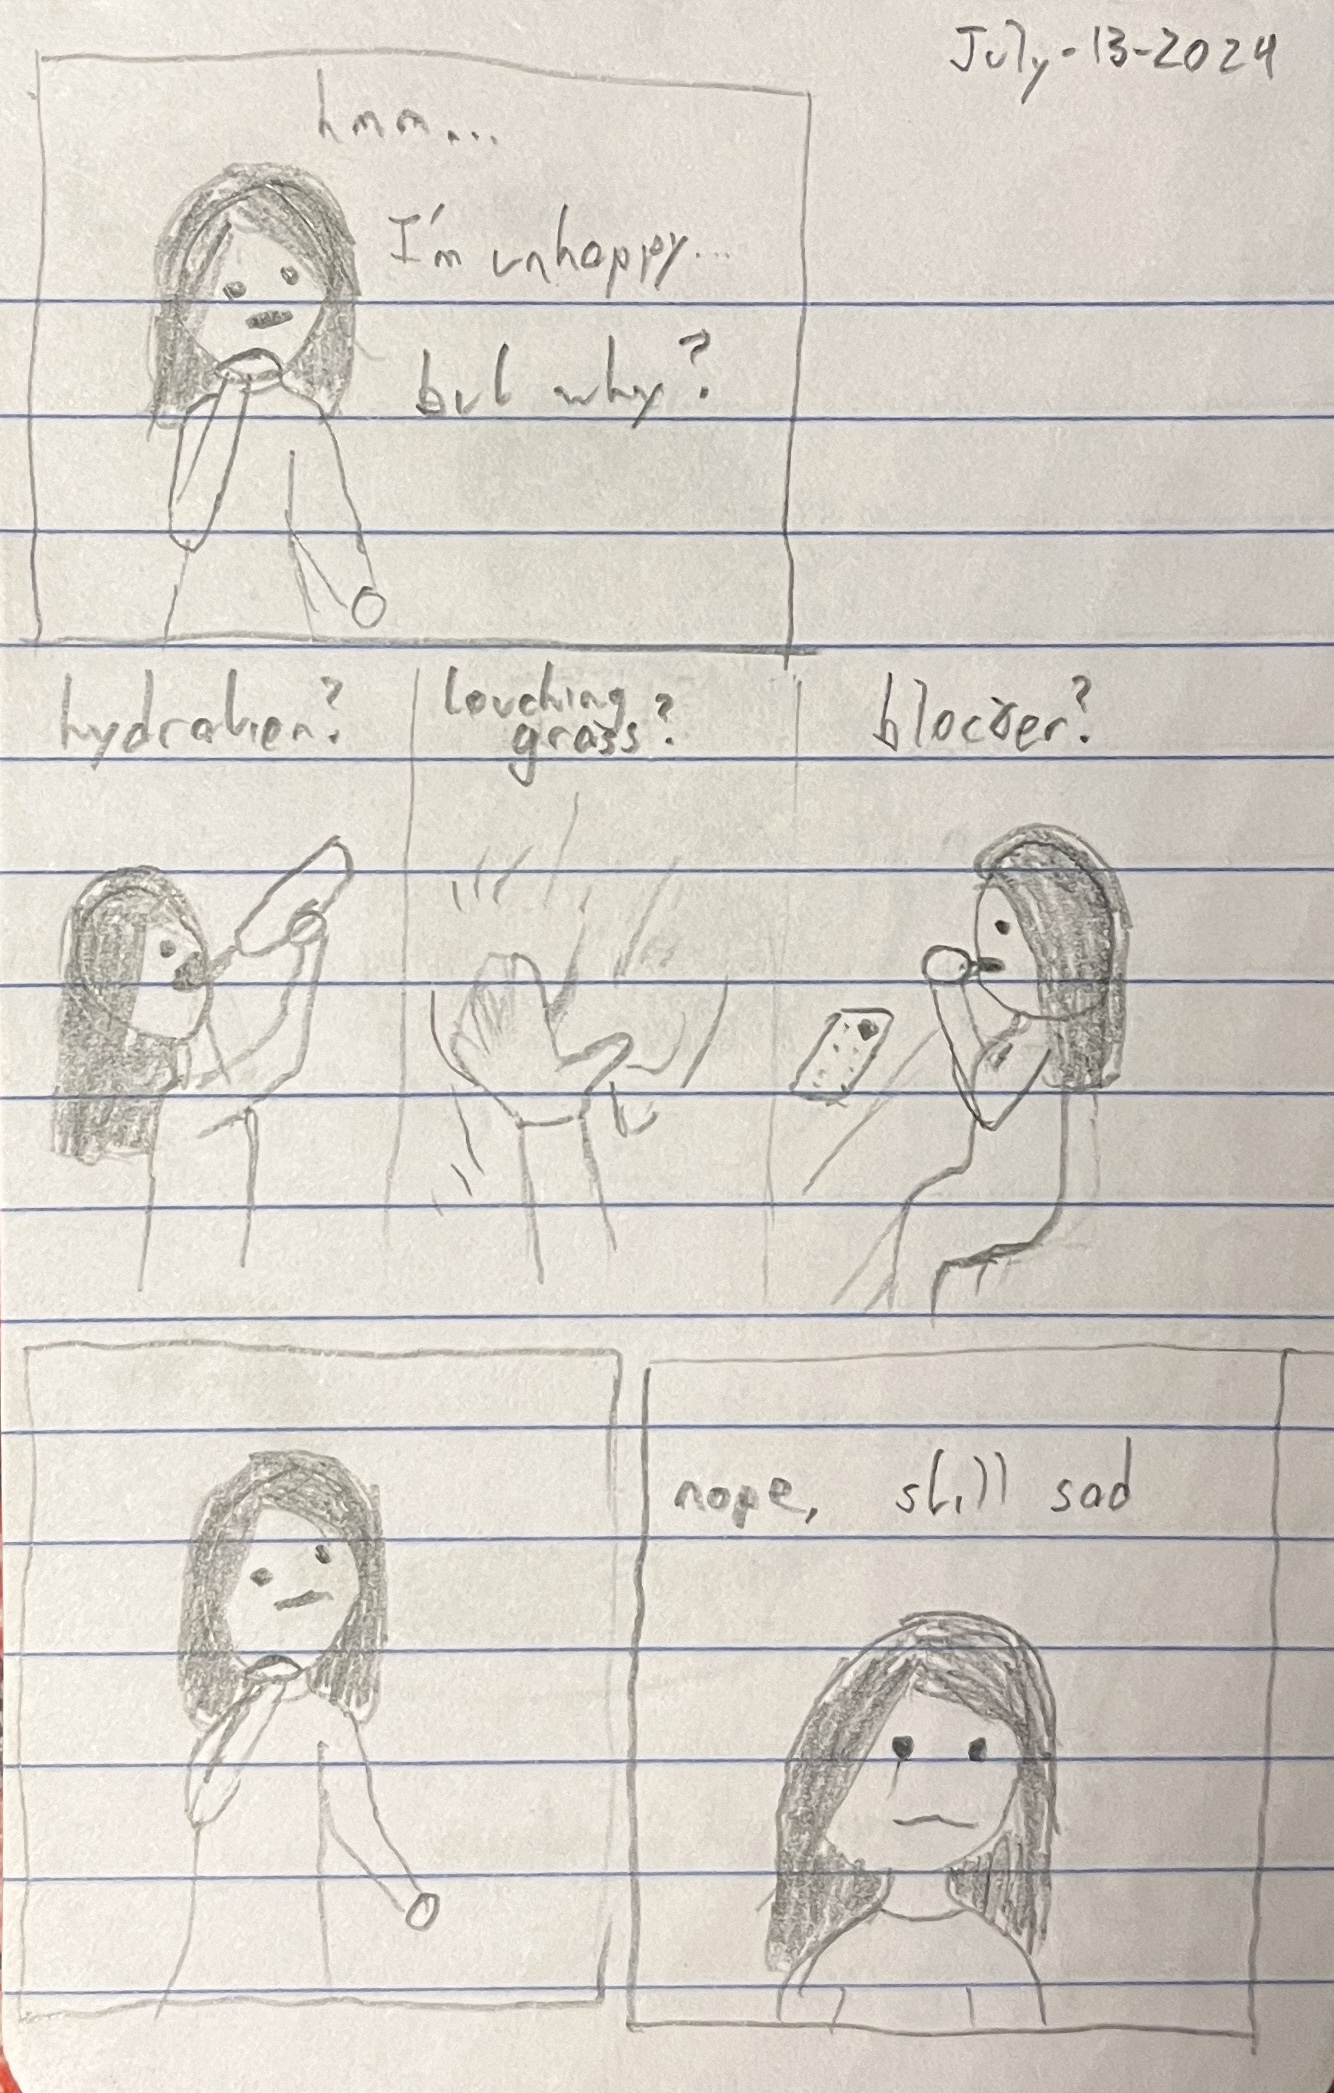 July-13-2024
hmm...
I'm unhappy...
but why?
hydration?
touching
grass?
blocker?
nope, still sad